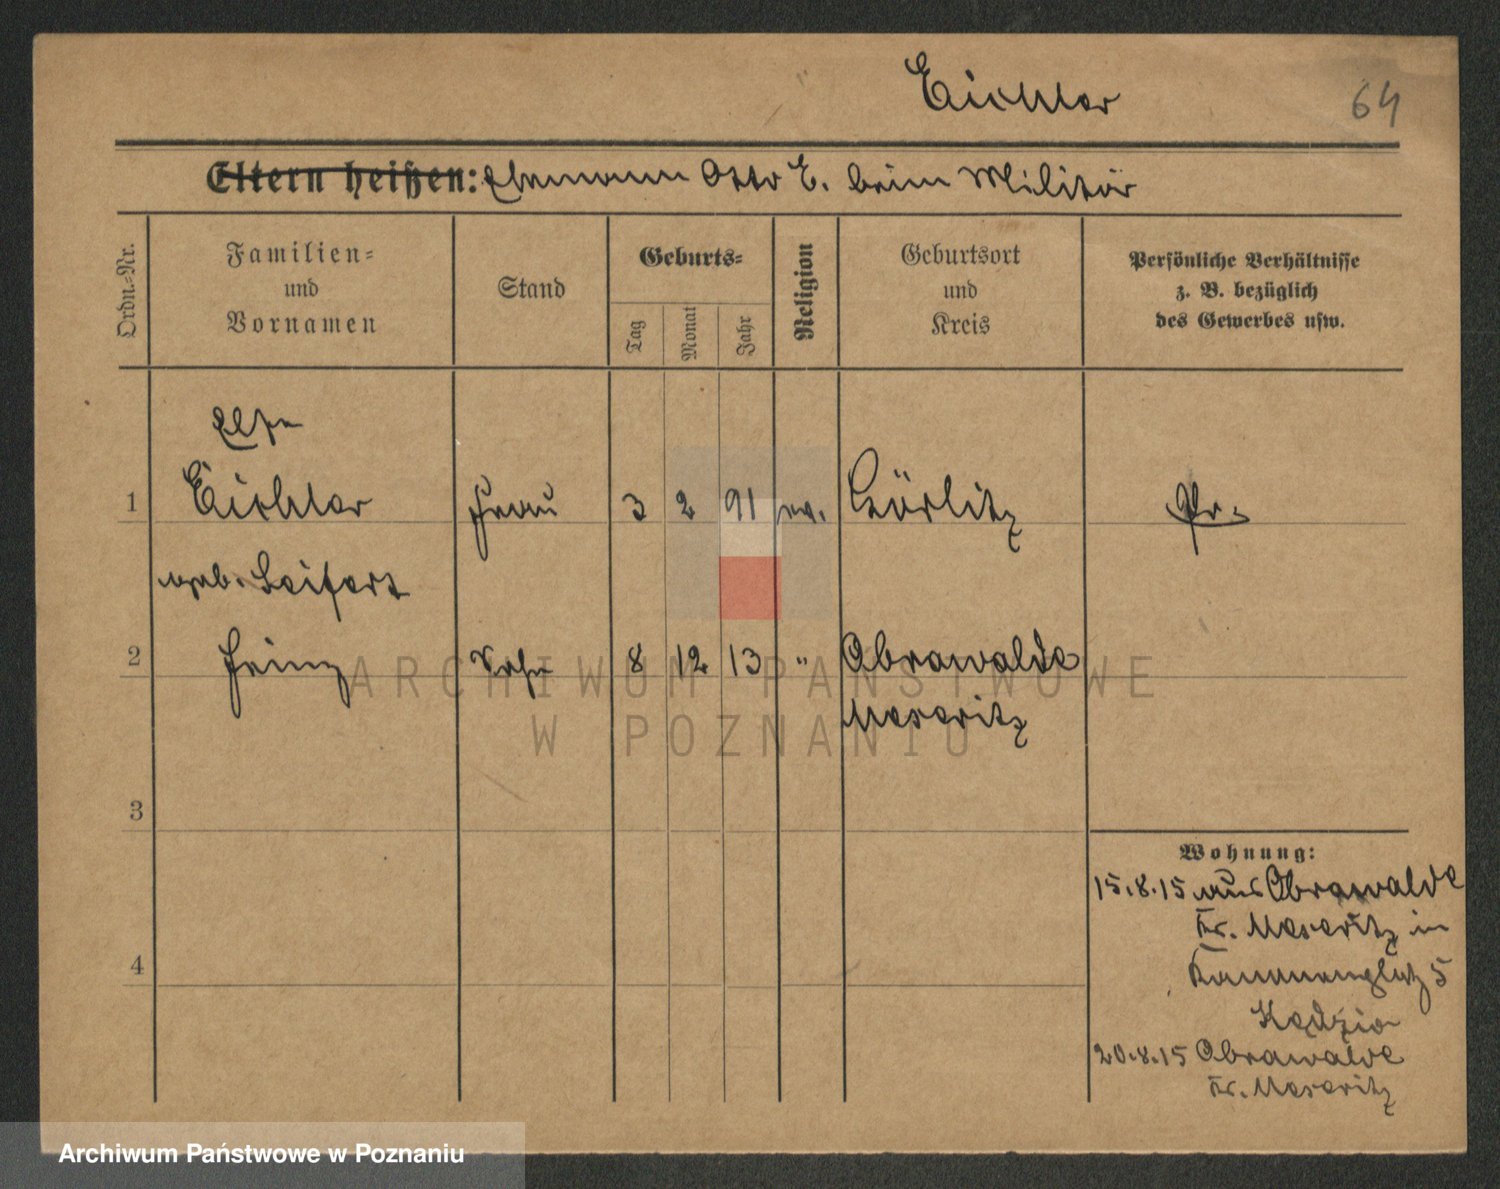 Eichler
64
Eltern heißen: Ehemann Otto E. beim Militär
Ordn.-Nr.
Familien-
und
Vornamen
Stand
Geburts-
Tag
Monat
Jahr
Religion
Geburtsort
und
Kreis
Persönliche Verhältnisse
z. B. bezüglich
des Gewerbes usw.
Else
1 Eichler Frau 3 2 91 ev. Görlitz Pr.
geb. Seifert
2 Heinz Sohn 8 12 13 " Obrawalde
Meseritz
3
4
Wohnung:
15.8.15 aus Obrawalde
Kr. Meseritz in
5
Kędzia
20.8.15 Obrawalde
Kr. Meseritz
ARCHIWUM PAŃSTWOWE
W POZNANIU
Archiwum Państwowe w Poznaniu